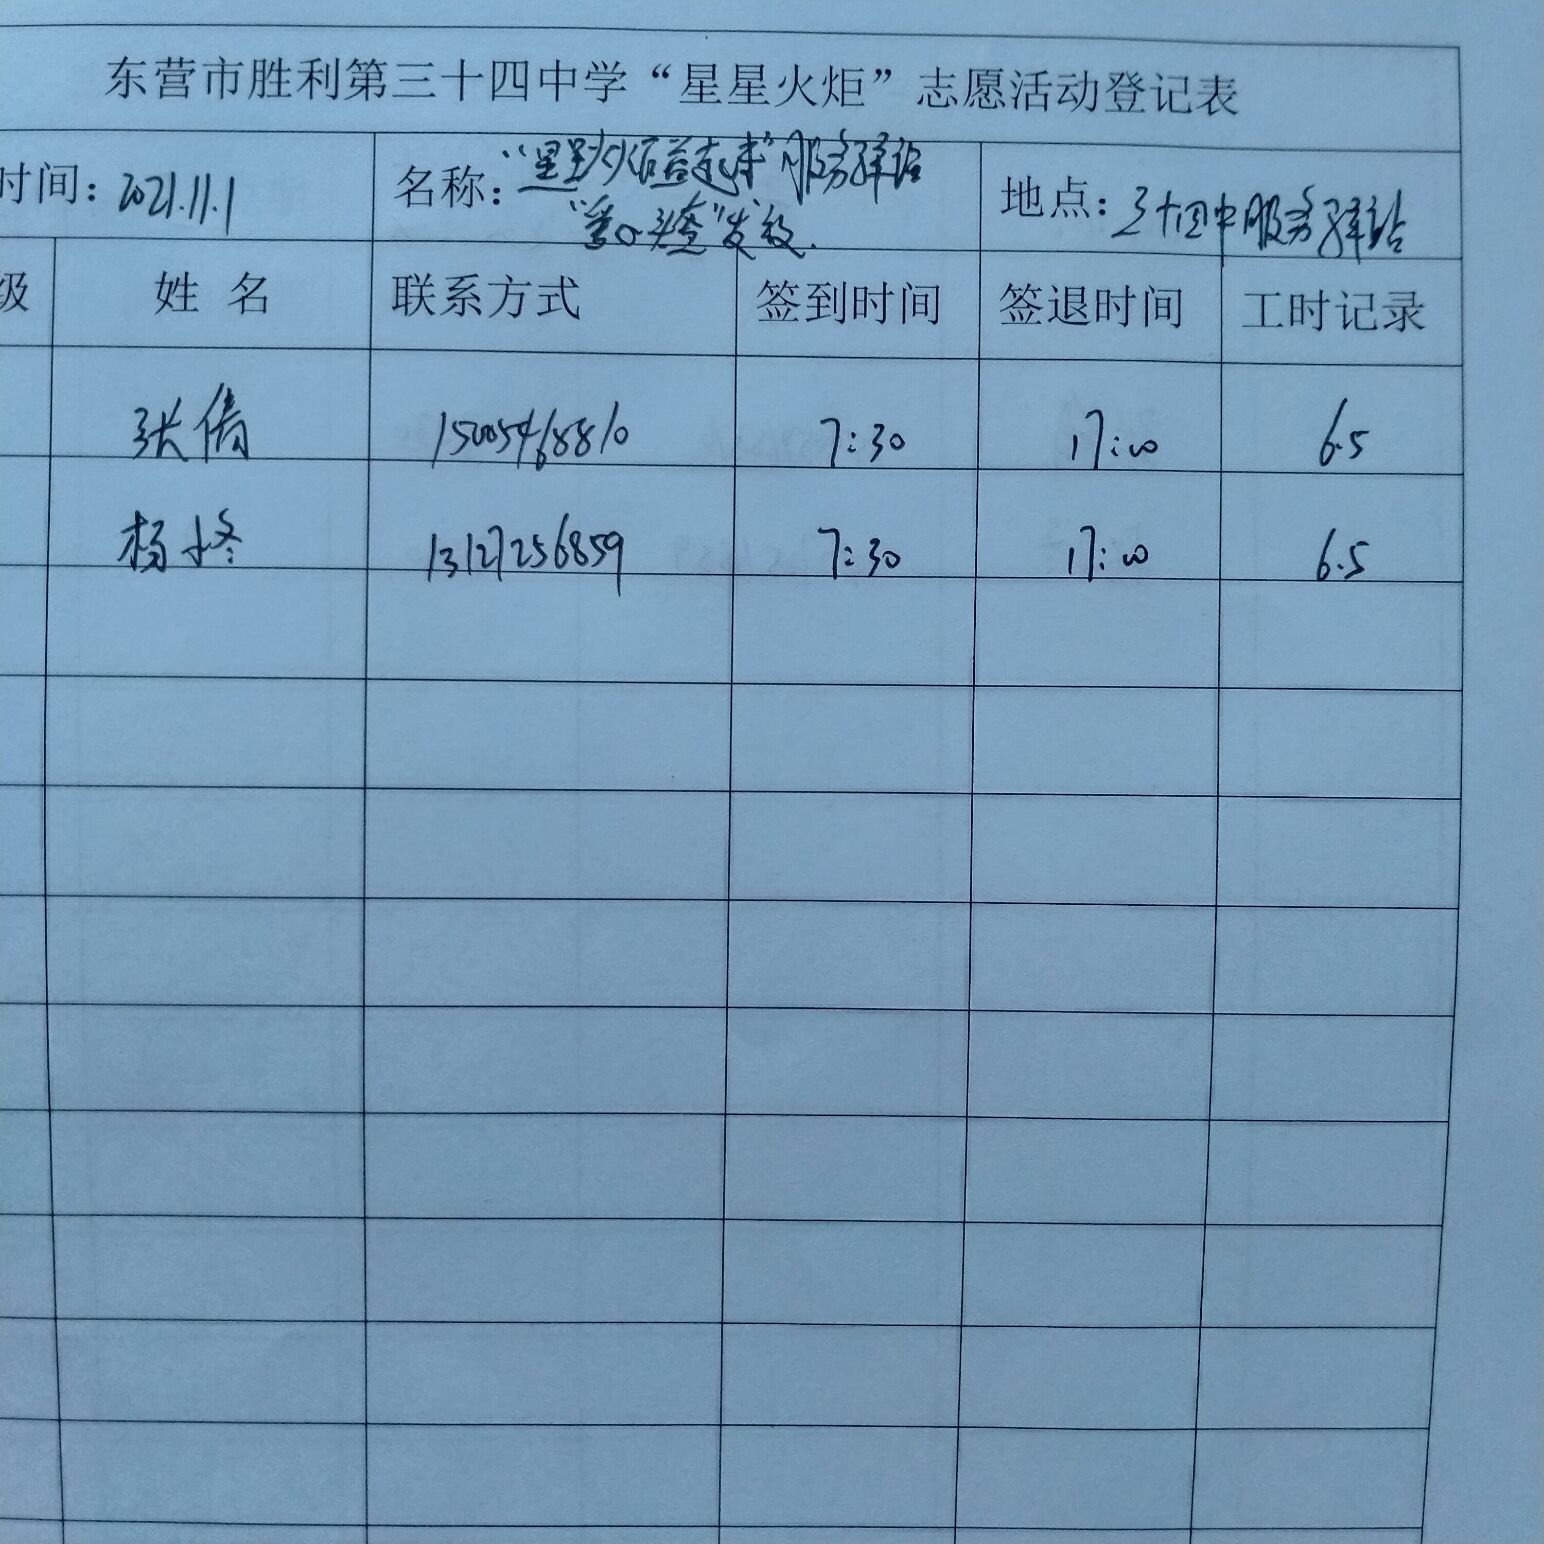 东营市胜利第三十四中学“星星火炬”志愿活动登记表
时间: 2021.11.1 名称: 服务驿站 地点: 三十四中服务驿站
发放.
级 姓 名 联系方式 签到时间 签退时间 工时记录
张倩 15005468810 7:30 17:00 6.5
杨 13127256859 7:30 17:00 6.5